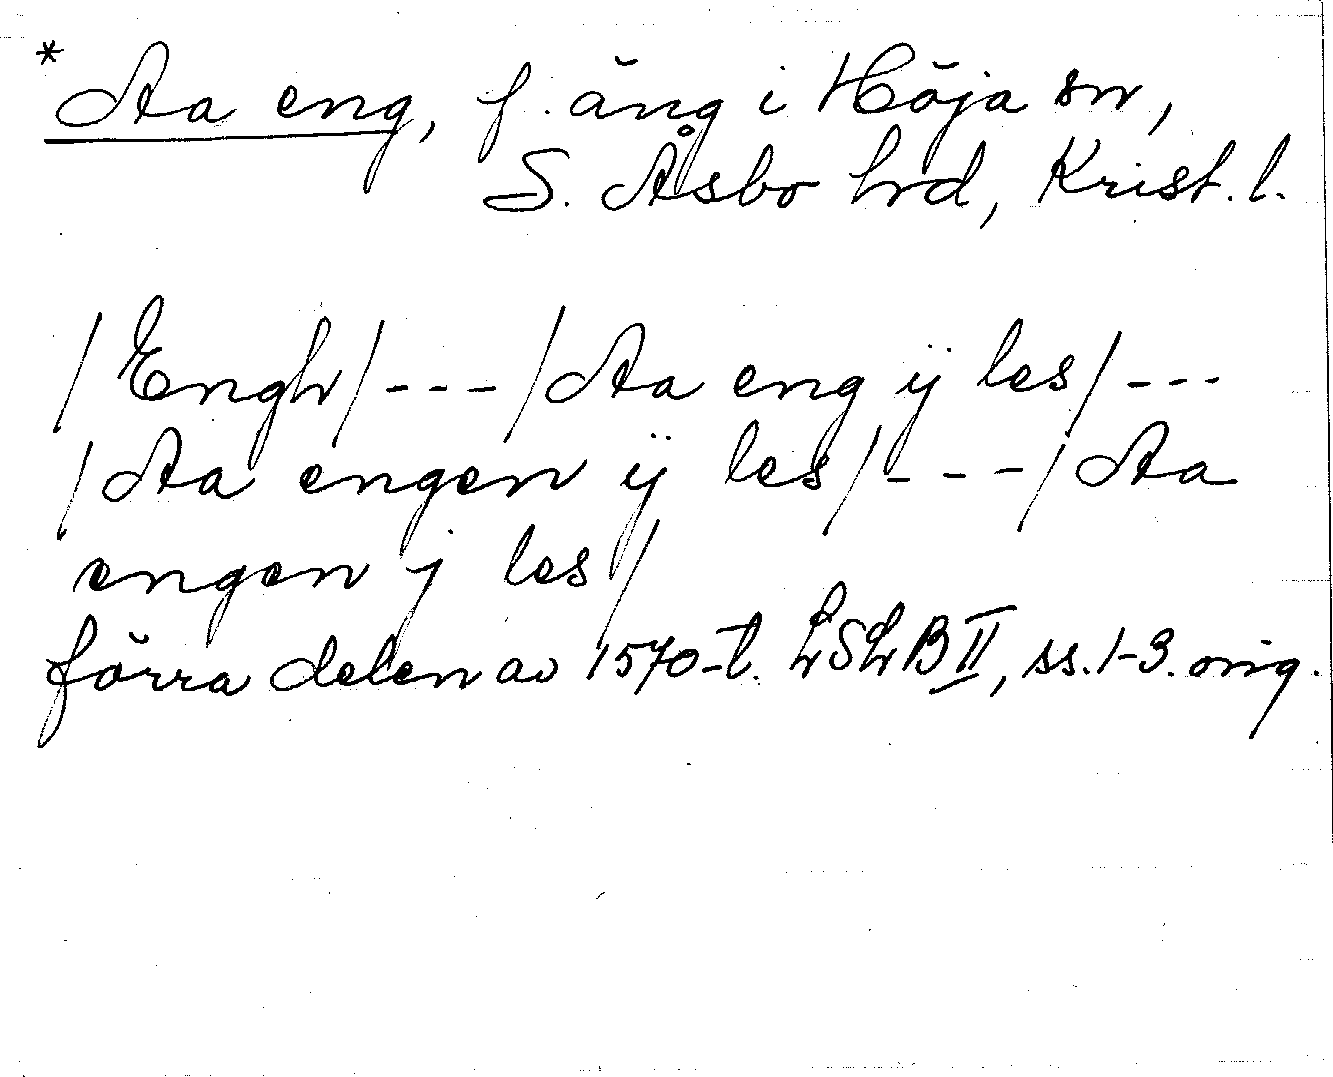 * Aa eng, f. äng i Höja sn,
S. Åsbo hrd, Krist. l.
/Engh/---/Aa eng ÿ les/---
/Aa engen ÿ les/---/Aa
engen j les/
förra delen av 1570-t. LSLB II, ss. 1-3. orig.